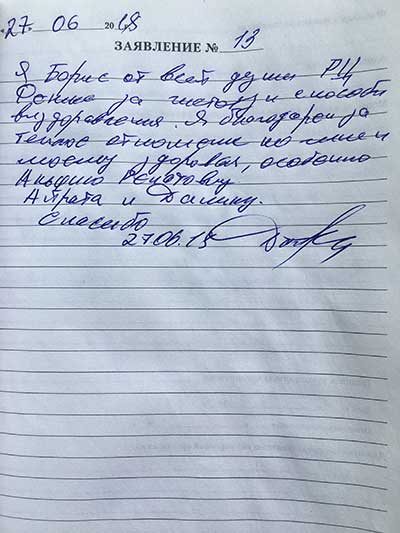 «27» 06 2018
ЗАЯВЛЕНИЕ № 13
Я Борис от всей души РЦ
за методы и способы
выздоровления. Я благодарен за
теплое отношение ко мне и
моему здоровая, особенно
Андрею Ренатовну
Айрата и Далину.
Спасибо
27.06.18